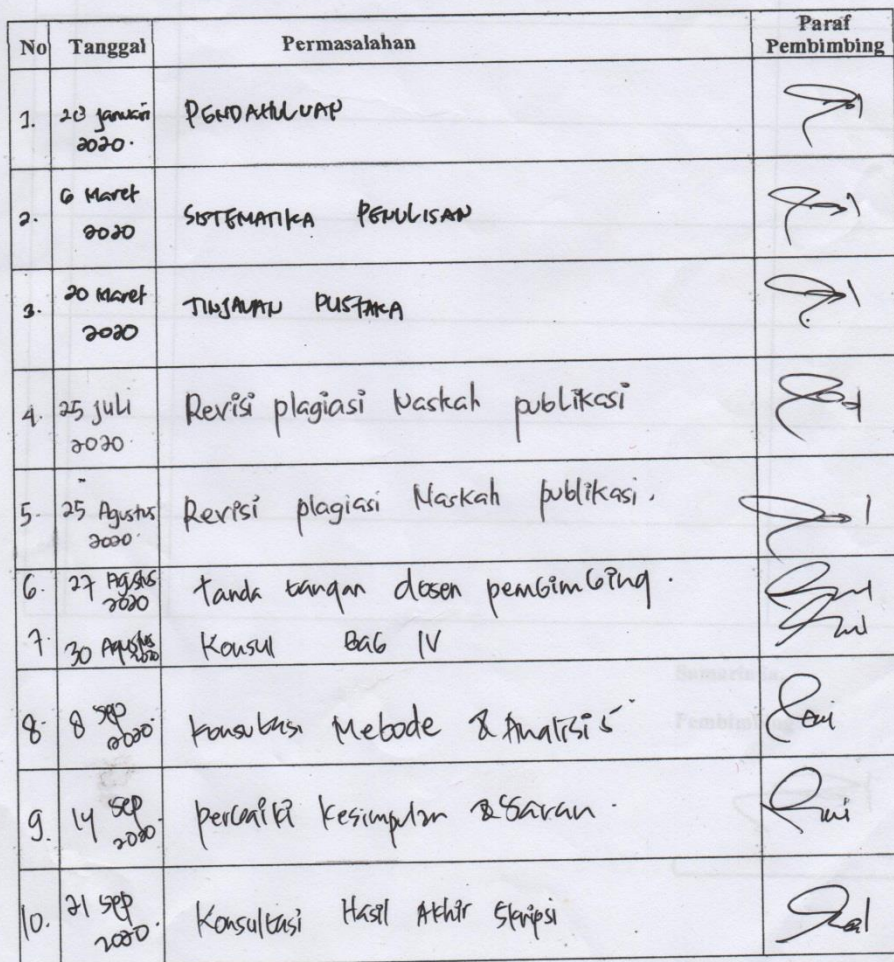 No Tanggal Permasalahan Paraf Pembimbing
1. 20 Januari 2020. PENDAHULUAN
2. 6 Maret 2020 SISTEMATIKA PENULISAN
3. 20 Maret 2020 TINJAUAN PUSTAKA
4. 25 Juli 2020. Revisi plagiasi Naskah publikasi
5. 25 Agustus 2020. Revisi plagiasi Naskah publikasi.
6. 27 Agustus 2020 tanda tangan dosen pembimbing.
7. 30 Agustus 2020 Konsul Bab IV
8. 8 Sep 2020. Konsultasi Metode & Analisis
9. 14 Sep 2020. perbaiki Kesimpulan & Saran.
10. 21 Sep 2020. Konsultasi Hasil Akhir Skripsi
Samarinda,
Pembimbing